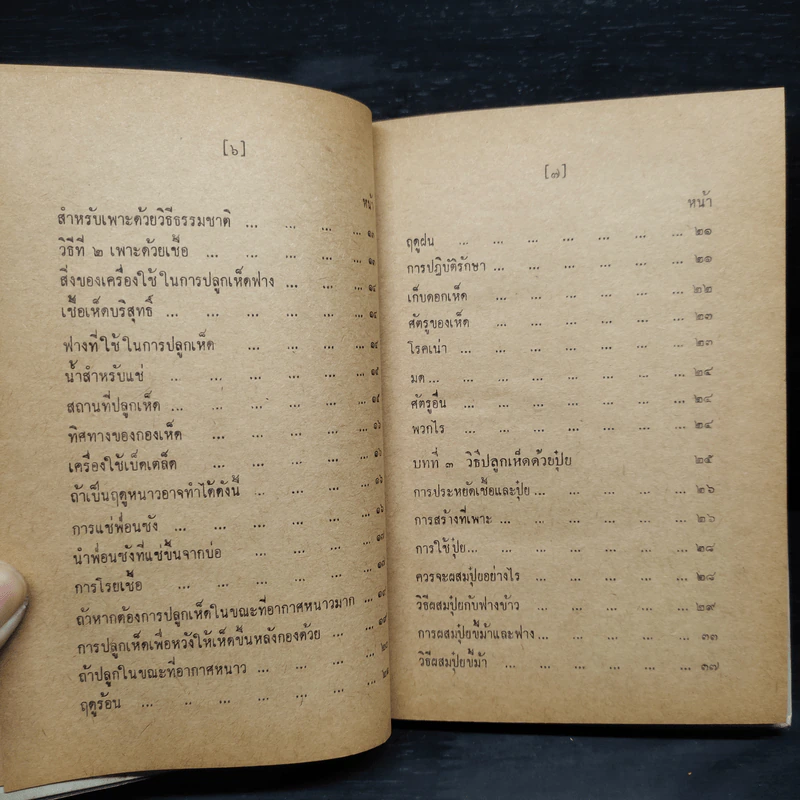 [๖]
หน้า
สำหรับเพาะด้วยวิธีธรรมชาติ ... ... ... ...
วิธีที่ ๒ เพาะด้วยเชื้อ ... ... ... ... ...
สิ่งของเครื่องใช้ ในการปลูกเห็ดฟาง ... ... ... ๑๔
เชื้อเห็ดบริสุทธิ์ ... ... ... ... ... ๑๔
ฟางที่ใช้ ในการปลูกเห็ด ... ... ... ...
น้ำสำหรับแช่ ... ... ... ... ... ๑๕
สถานที่ปลูกเห็ด ... ... ... ... ... ๑๕
ทิศทางของกองเห็ด ... ... ... ... ๑๖
เครื่องใช้เบ็ดเตล็ด ... ... ... ... ๑๖
ถ้าเป็นฤดูหนาวอาจทำได้ดังนี้ ... ... ... ๑๖
การแช่ฟ่อนซัง ... ... ... ... ... ๑๖
นำฟ่อนซังที่แช่ขึ้นจากบ่อ ... ... ... ...
การโรยเชื้อ ... ... ... ... ...
ถ้าหากต้องการปลูกเห็ดในขณะที่อากาศหนาวมาก ...
การปลูกเห็ดเพื่อหวังให้เห็ดขึ้นหลังกองด้วย ... ...
ถ้าปลูกในขณะที่อากาศหนาว ... ... ... ...
ฤดูร้อน ... .. ... ... ... ...
[๗]
หน้า
ฤดูฝน ... ... ... ... ... ... ๒๑
การปฏิบัติรักษา ... ... ... ... ... ๒๑
เก็บดอกเห็ด ... ... ... ... ... ๒๒
ศัตรูของเห็ด ... ... ... ... ... ๒๓
โรคเน่า ... ... ... ... ... ... ๒๓
มด ... ... ... ... ... ... ... ๒๔
ศัตรูอื่น ... ... ... ... ... ... ๒๔
พวกไร ... ... ... ... ... ... ๒๔
บทที่ ๓ วิธีปลูกเห็ดด้วยปุ๋ย ๒๕
การประหยัดเชื้อและปุ๋ย ... ... ... ... ๒๖
การสร้างที่เพาะ ... ... ... ... ... ๒๖
การใช้ปุ๋ย... ... ... ... ... ... ๒๘
ควรจะผสมปุ๋ยอย่างไร ... ... ... ... ๒๘
วิธีผสมปุ๋ยกับฟางข้าว ... ... ... ... ๒๙
การผสมปุ๋ยขี้ม้าและฟาง... ... ... ... ๓๓
วิธีผสมปุ๋ยขี้ม้า ... ... ... ... ... ๓๗